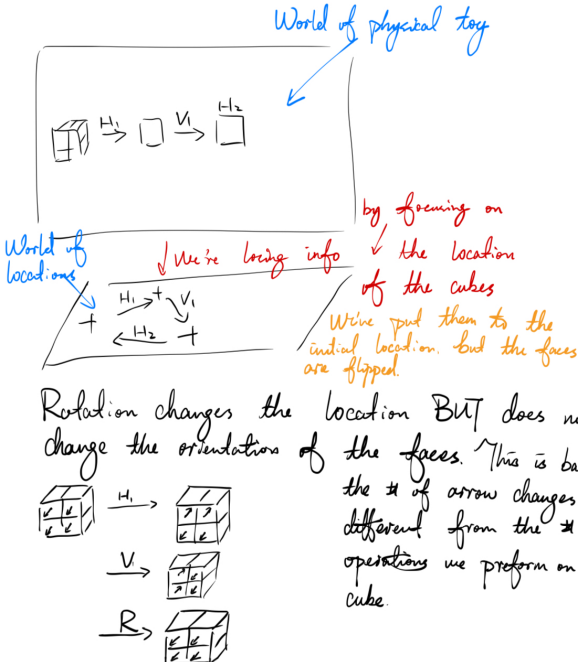 World of physical toy
H₁ V₁ H₂
by focusing on
World of locations
We're losing info
the location
of the cubes
H₁ V₁
H₂
We've put them to the
initial location, but the faces
are flipped.
Rotation changes the location BUT does n
change the orientation of the faces. This is ba
the # of arrow changes
different from the #
operations we preform on
cube.
H₁
V₁
R